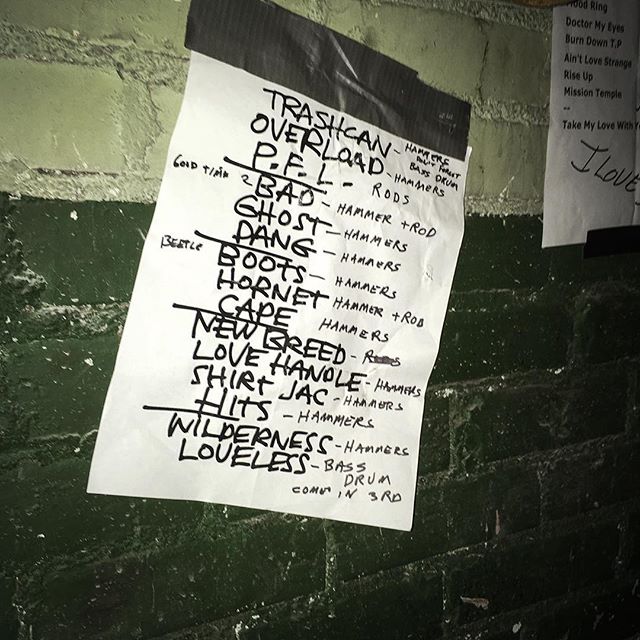 TRASHCAN - HAMMERS
DON'T FORGET
BASS DRUM
OVERLOAD - HAMMERS
P.F.L. - RODS
2 BAD - HAMMER + ROD
GHOST - HAMMERS
DANG - HAMMERS
BEETLE BOOTS - HAMMERS
HORNET HAMMER + ROD
CAPE HAMMERS
NEW BREED -
LOVE HANDLE - HAMMERS
SHIRT JAC - HAMMERS
HITS - HAMMERS
WILDERNESS - HAMMERS
LOVELESS - BASS
DRUM
COMES IN 3RD
Mood Ring
Doctor My Eyes
Burn Down T.P
Ain't Love Strange
Rise Up
Mission Temple
--
Take My Love With
I LOVE